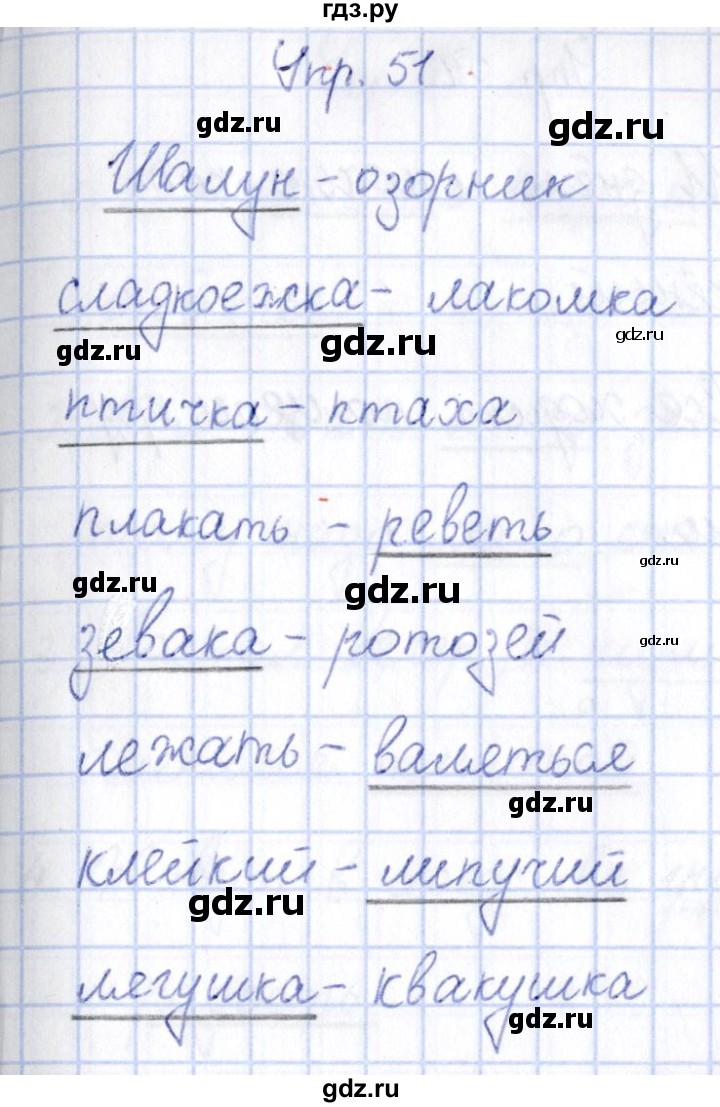 гдз.ру
Упр. 51
gdz.ru
gdz.ru
Шалун - озорник
сладкоежка - лакомка
gdz.ru
gdz.ru
gdz.ru
птичка - птаха
плакать - реветь
gdz.ru
gdz.ru
gdz.ru
зевака - ротозей
gdz.ru
лежать - валяться
gdz.ru
клейкий - липучий
gdz.ru
лягушка - квакушка
gdz.ru
gdz.ru